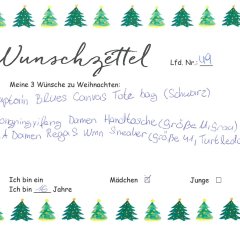 Wunschzettel
Lfd. Nr.: 49
Meine 3 Wünsche zu Weihnachten:
Blues Canvas Tote bag (Schwarz)
Damen Handtasche (Größe M, Grau)
A Damen Rega S Wmn Sneaker (Größe 41, Turtledo
Ich bin ein Mädchen ☑ Junge ☐
Ich bin Jahre